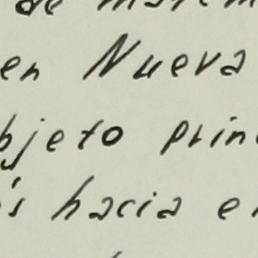 de
en Nueva
bjeto prin
s hacia e